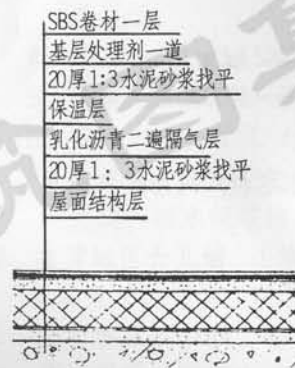 SBS卷材一层
基层处理剂一道
20厚1:3水泥砂浆找平
保温层
乳化沥青二遍隔气层
20厚1: 3水泥砂浆找平
屋面结构层